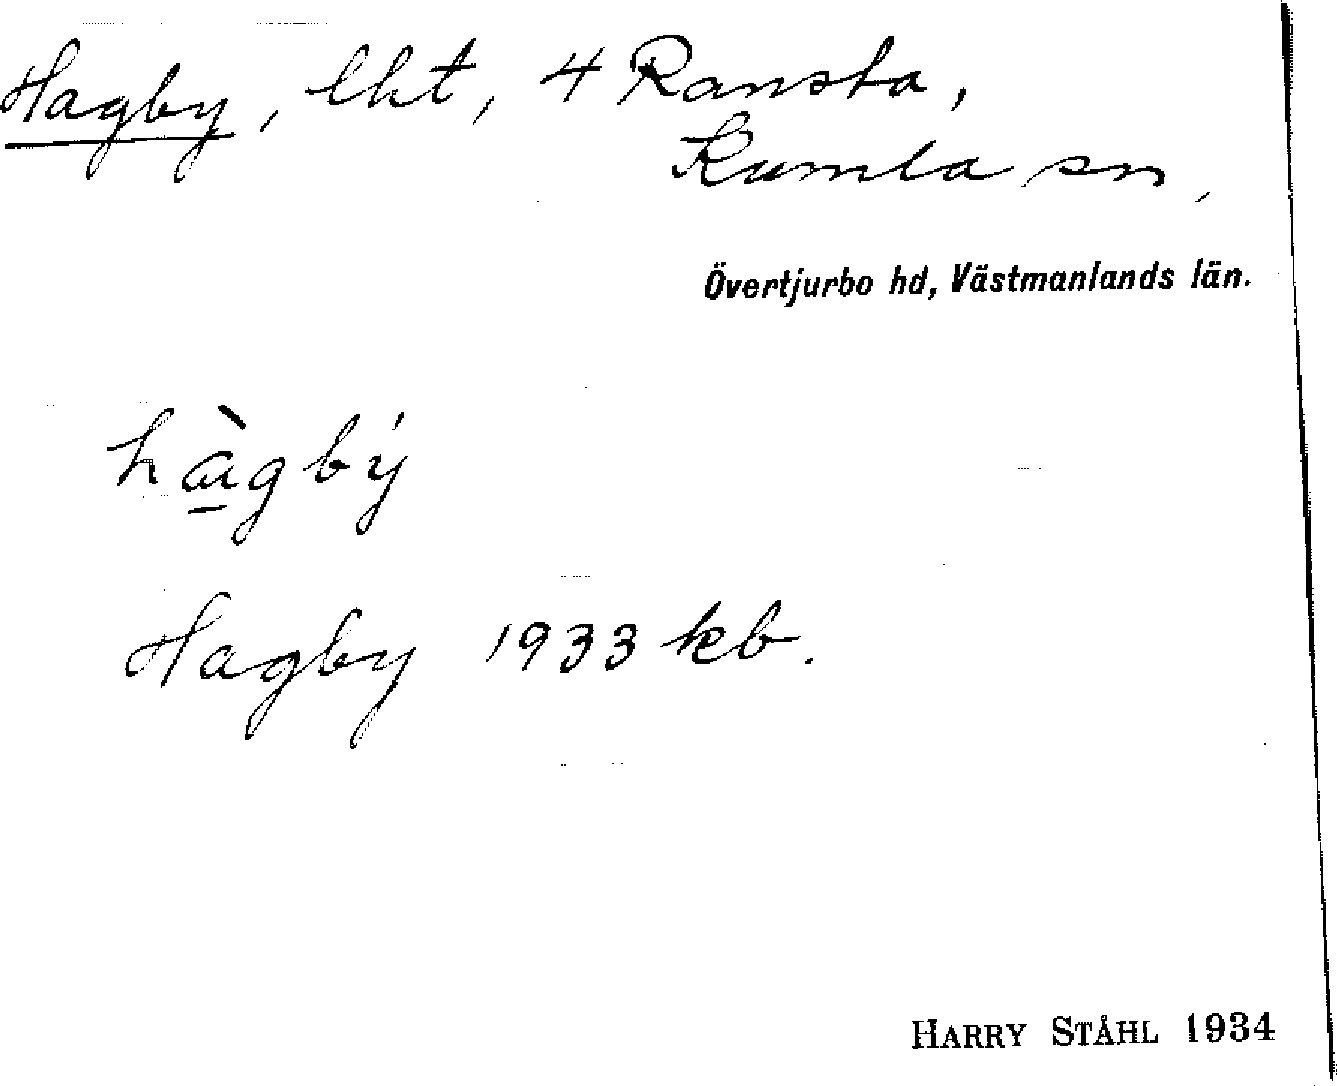 Hagby, lht, 4 Ransta,
Kumla sn,
Övertjurbo hd, Västmanlands län.
hàgbý
Hagby 1933 kb.
HARRY STÅHL 1934